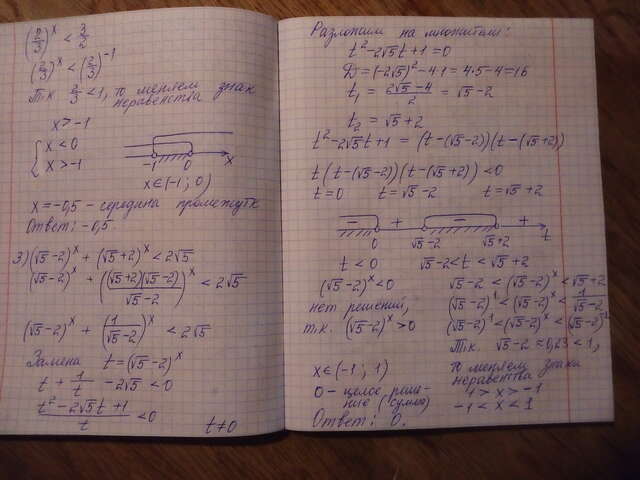 (2/3)^x < 3/2
(2/3)^x < (2/3)^-1
Т.к 2/3 < 1, то меняем знак
неравенства
x > -1
{ x < 0
x > -1
-1 0 x
x ∈ (-1; 0)
x = -0,5 - середина промежутк
Ответ: -0,5.
3) (√5-2)^x + (√5+2)^x < 2√5
(√5-2)^x + ((√5+2)(√5-2)/(√5-2))^x < 2√5
(√5-2)^x + (1/(√5-2))^x < 2√5
Замена t = (√5-2)^x
t + 1/t - 2√5 < 0
(t² - 2√5t + 1)/t < 0 t ≠ 0
Разложим на множители:
t² - 2√5t + 1 = 0
D = (-2√5)² - 4·1 = 4·5 - 4 = 16
t₁ = (2√5 - 4)/2 = √5 - 2
t₂ = √5 + 2
t² - 2√5t + 1 = (t - (√5-2))(t - (√5+2))
t(t - (√5-2))(t - (√5+2)) < 0
t = 0 t = √5 - 2 t = √5 + 2
- + - +
0 √5-2 √5+2 t
t < 0 √5-2 < t < √5+2
(√5-2)^x < 0 √5-2 < (√5-2)^x < √5+2
нет решений, (√5-2)^1 < (√5-2)^x < 1/(√5-2)
т.к. (√5-2)^x > 0 (√5-2)^1 < (√5-2)^x < (√5-2)^-1
Т.к. √5-2 ≈ 0,23 < 1,
x ∈ (-1; 1) то меняем знаки
неравенства
0 - целое реше- 1 > x > -1
ние (сумма) -1 < x < 1
Ответ: 0.